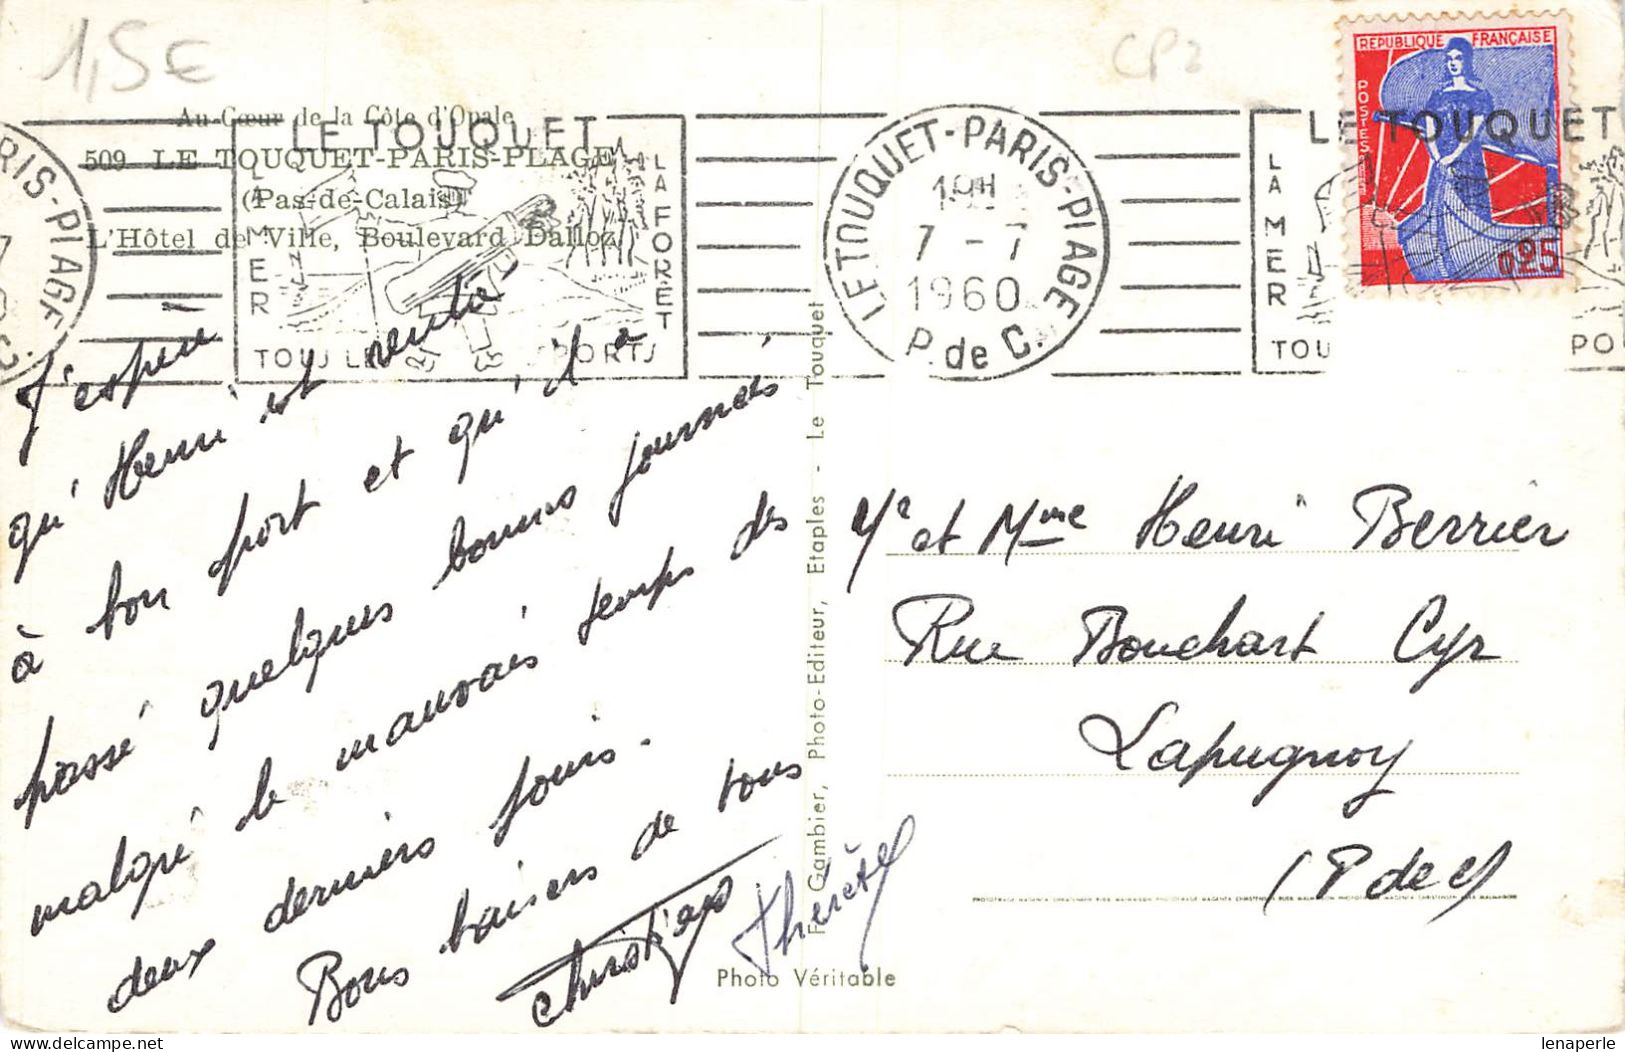 1,5€
CP2
Au Cœur de la Côte d'Opale
509 LE TOUQUET-PARIS-PLAGE
(Pas-de-Calais)
L'Hôtel de Ville, Boulevard Dalloz
LE TOUQUET
LA MER
LA FORET
TOUS LES SPORTS
RIS-PLAGE
LE TOUQUET-PARIS-PLAGE
19H
7-7
1960
P. de C.
LE TOUQUET
LA MER
TOU
PO
REPUBLIQUE FRANÇAISE
POSTES
0,25
J'espère
qu'Henri est rentré
à bon port et qu'il a
passé quelques bonnes journées
malgré le mauvais temps des
deux derniers jours.
Bons baisers de tous
Christiane
Thérèse
F. Gambier, Photo-Editeur, Etaples - Le Touquet
Photo Véritable
Mr et Mme Henri Berrier
Rue Bouchart Cyr
Lapugnoy
(P de C)
lenaperle